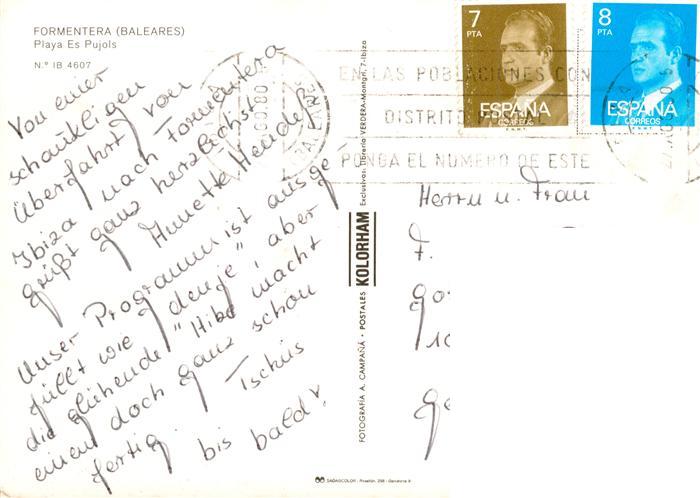 FORMENTERA (BALEARES)
Playa Es Pujols
N.º IB 4607
Von einer
schaukligen
Überfahrt von
Ibiza nach Formentera
grüßt ganz herzlichst
Annette
Unser Programm ist ausge-
füllt wie denje", aber
die glühende "Hibe macht
einem doch ganz schön
fertig. Tschüs
bis bald!
FOTOGRAFIA A. CAMPAÑÁ • POSTALES KOLORHAM Exclusivas: Librería VERDERA-Montgrí, 7-Ibiza
7
PTA
ESPAÑA
CORREOS
F.N.M.T.
8
PTA
ESPAÑA
CORREOS
F.N.M.T.
EN LAS POBLACIONES CON
DISTRITO
PONGA EL NUMERO DE ESTE
Herrn u. Frau
F.
go
10
ge
SADAGCOLOR - Rosellón, 298 - Barcelona-9